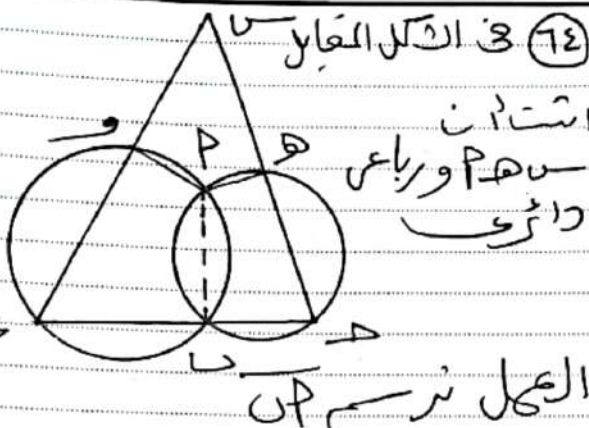 ٦٤ فى الشكل المقابل
اثبت أن
س هـ م و رباعى
دائرى
س
و
م
هـ
حـ
العمل نرسم م ں